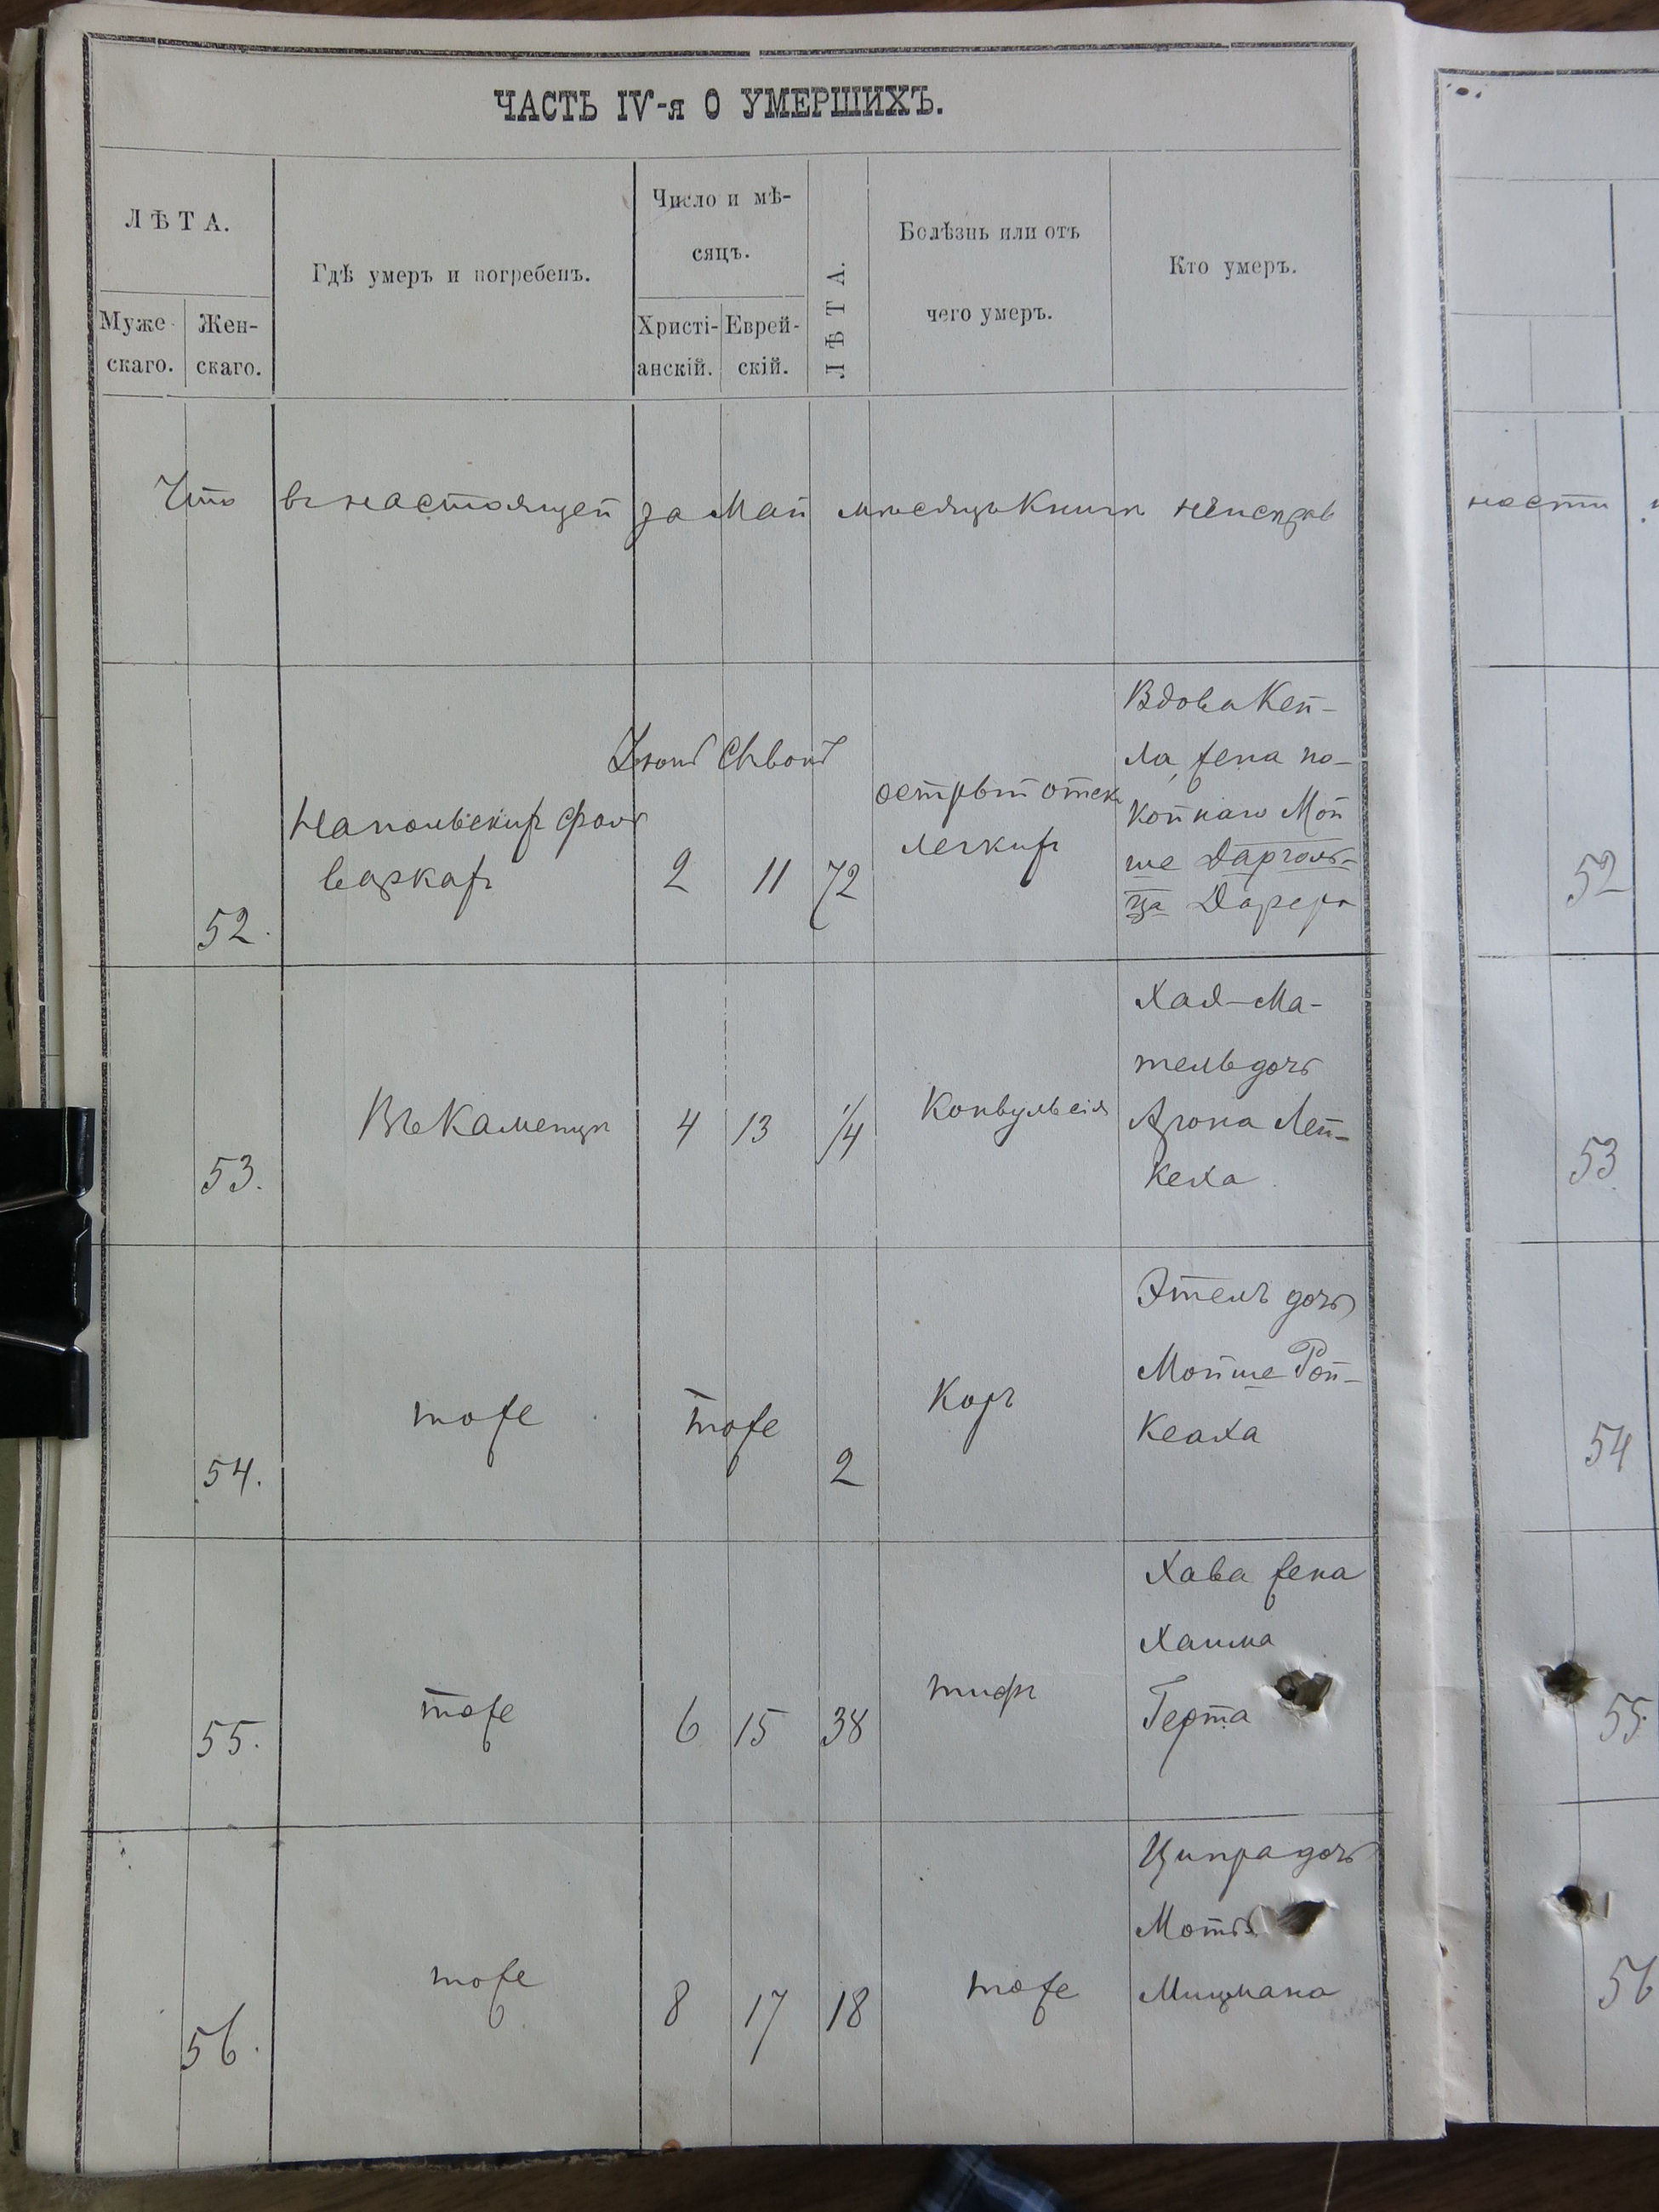 ЧАСТЬ IV-я О УМЕРШИХЪ.
ЛѢТА.
Муже-
скаго.
Жен-
скаго.
Гдѣ умеръ и погребенъ.
Число и мѣ-
сяцъ.
Христі-
анскій.
Еврей-
скій.
ЛѢТА.
Болѣзнь или отъ
чего умеръ.
Кто умеръ.
Что въ настоящей за Май мѣсяцъ Книги неисправ
ности
52.
Напольскихъ фоль
варкахъ
Іюнь Сивонъ
2 11 72
острый отекъ
легкихъ
Вдова Кей-
ла, жена по-
койнаго Мой
ше Дарголь-
ца
52
53.
Въ Каменцѣ
4 13 1/4
Конвульсія
Хая-Ма-
тель дочь
Арона Лей-
53
54.
тоже
тоже
2
Корь
Этель дочь
Мойше Рой-
54
55.
тоже
6 15 38
тифъ
Хава жена
Хаима
Герта
55.
56.
тоже
8 17 18
тоже
Ципра дочь
Моть
Мицмана
56